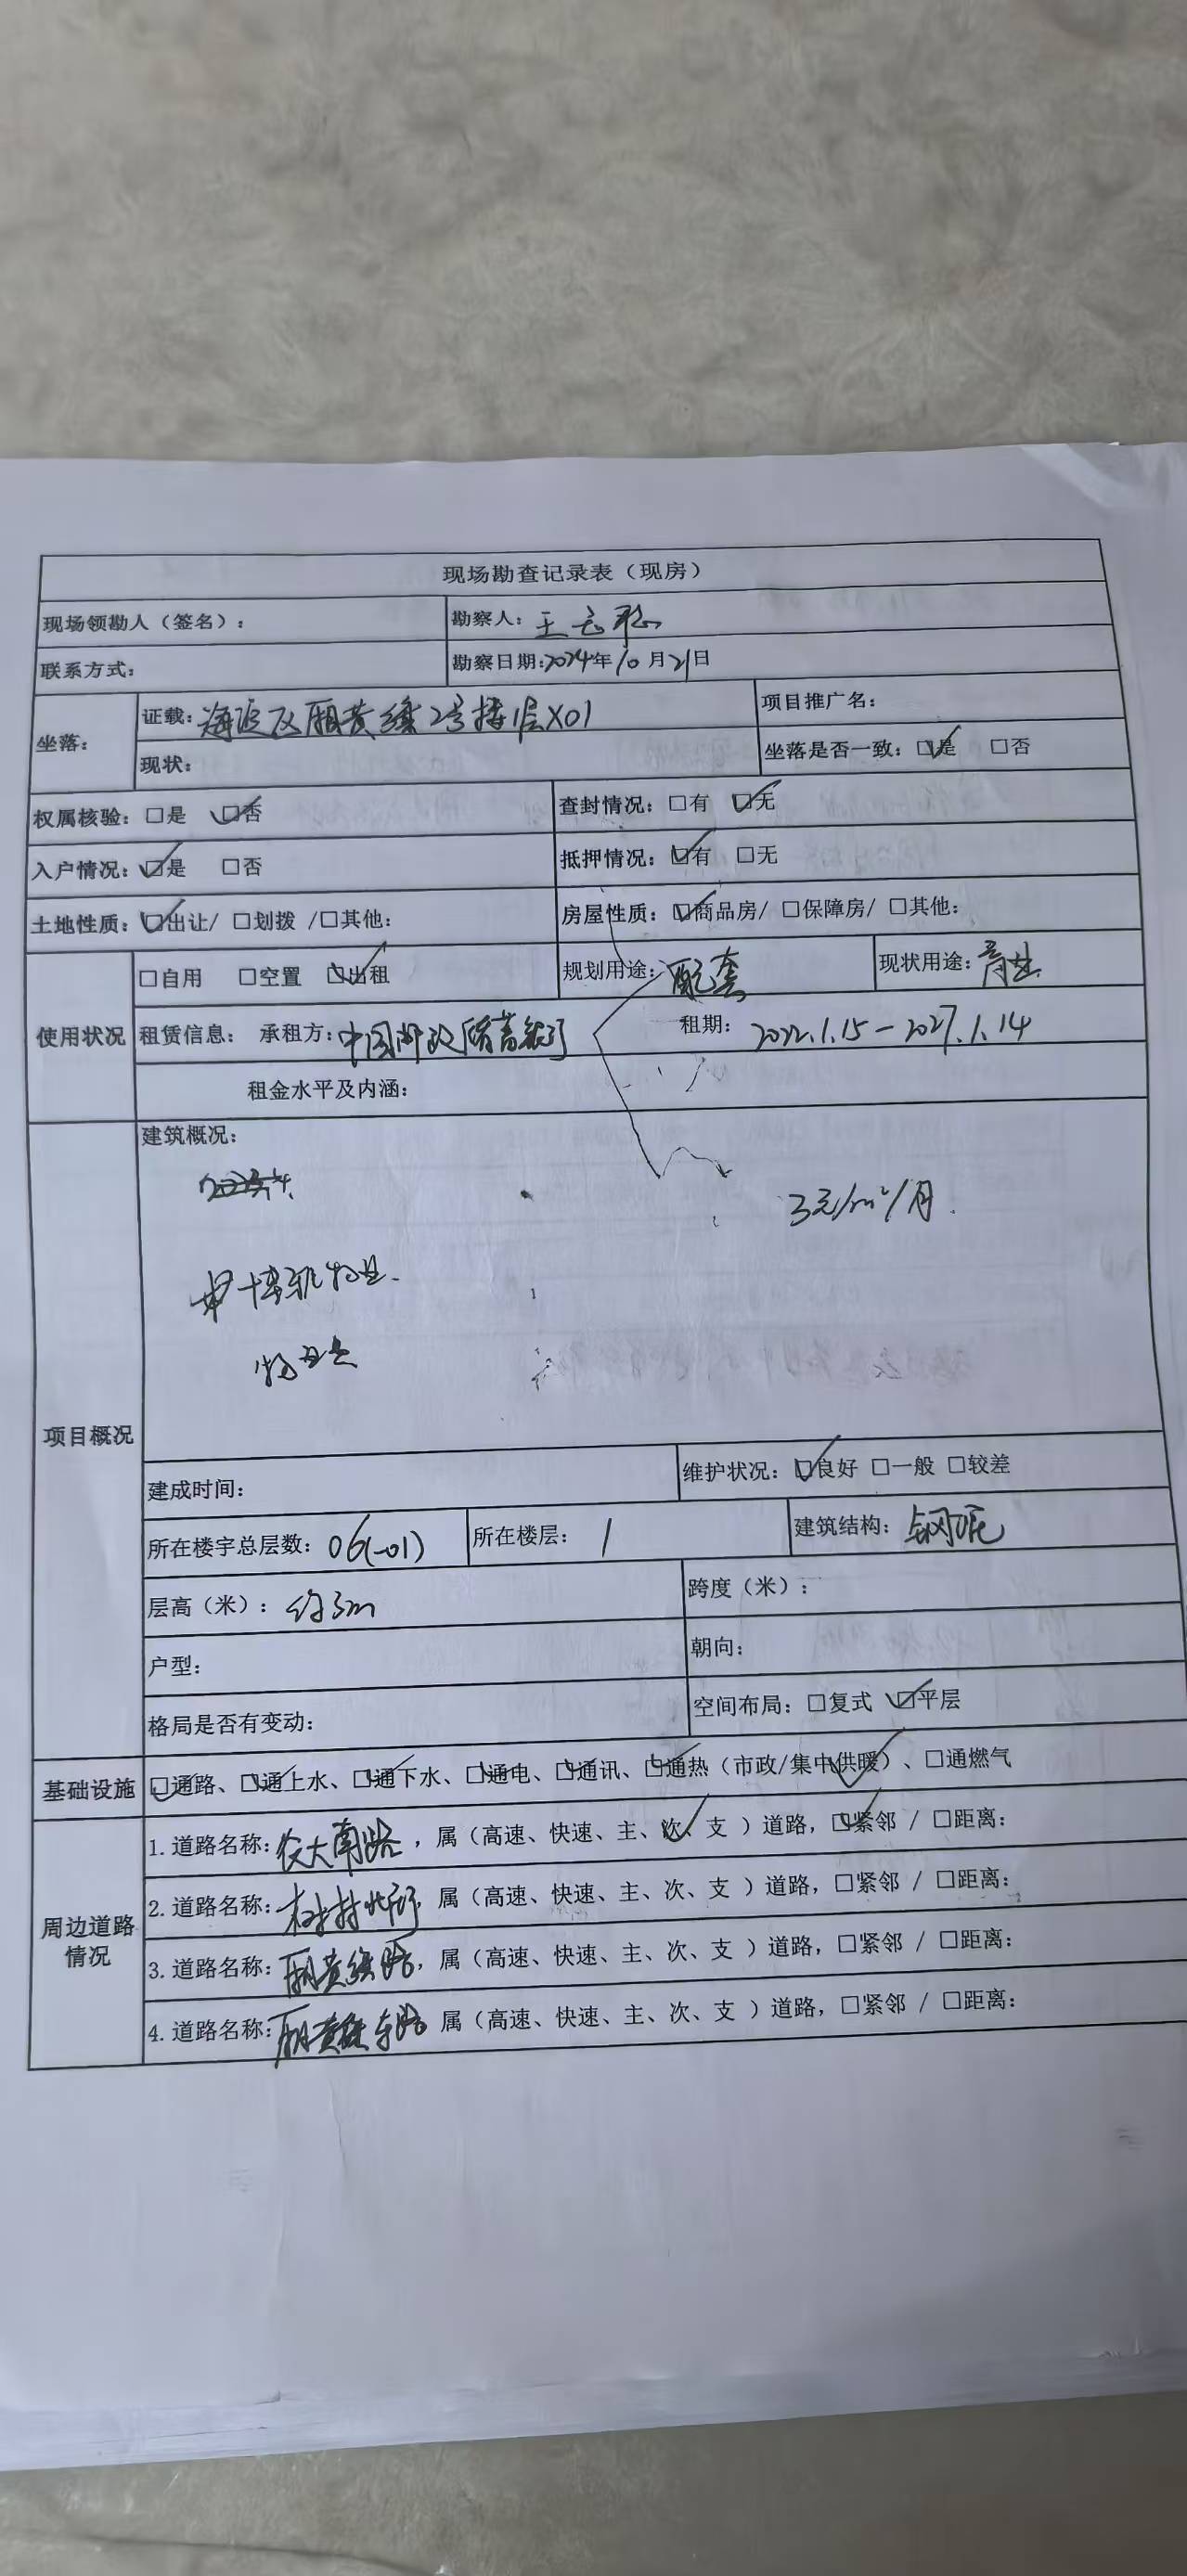 现场勘查记录表（现房）
现场领勘人（签名）： 勘察人：王
联系方式： 勘察日期：2024年10月21日
坐落： 证载：海淀区厢黄旗2号楼1层X01 项目推广名：
现状： 坐落是否一致：☑是 □否
权属核验：□是 ☑否 查封情况：□有 ☑无
入户情况：☑是 □否 抵押情况：☑有 □无
土地性质：☑出让/ □划拨 /□其他： 房屋性质：☑商品房/ □保障房/ □其他：
使用状况 □自用 □空置 ☑出租 规划用途：配套 现状用途：商业
租赁信息： 承租方：中国邮政储蓄银行 租期：2022.1.15－2027.1.14
租金水平及内涵：
项目概况 建筑概况：
3元/m²/月.
物业.
建成时间： 维护状况：☑良好 □一般 □较差
所在楼宇总层数：06(-01) 所在楼层：1 建筑结构：钢混
层高（米）：约3m 跨度（米）：
户型： 朝向：
格局是否有变动： 空间布局：□复式 ☑平层
基础设施 ☑通路、☑通上水、☑通下水、☑通电、☑通讯、☑通热（市政/集中供暖）、□通燃气
周边道路情况 1.道路名称：农大南路，属（高速、快速、主、次、支 ）道路，☑紧邻 / □距离：
2.道路名称： 属（高速、快速、主、次、支 ）道路，□紧邻 / □距离：
3.道路名称：厢黄旗路，属（高速、快速、主、次、支 ）道路，□紧邻 / □距离：
4.道路名称：厢黄旗东路 属（高速、快速、主、次、支 ）道路，□紧邻 / □距离：